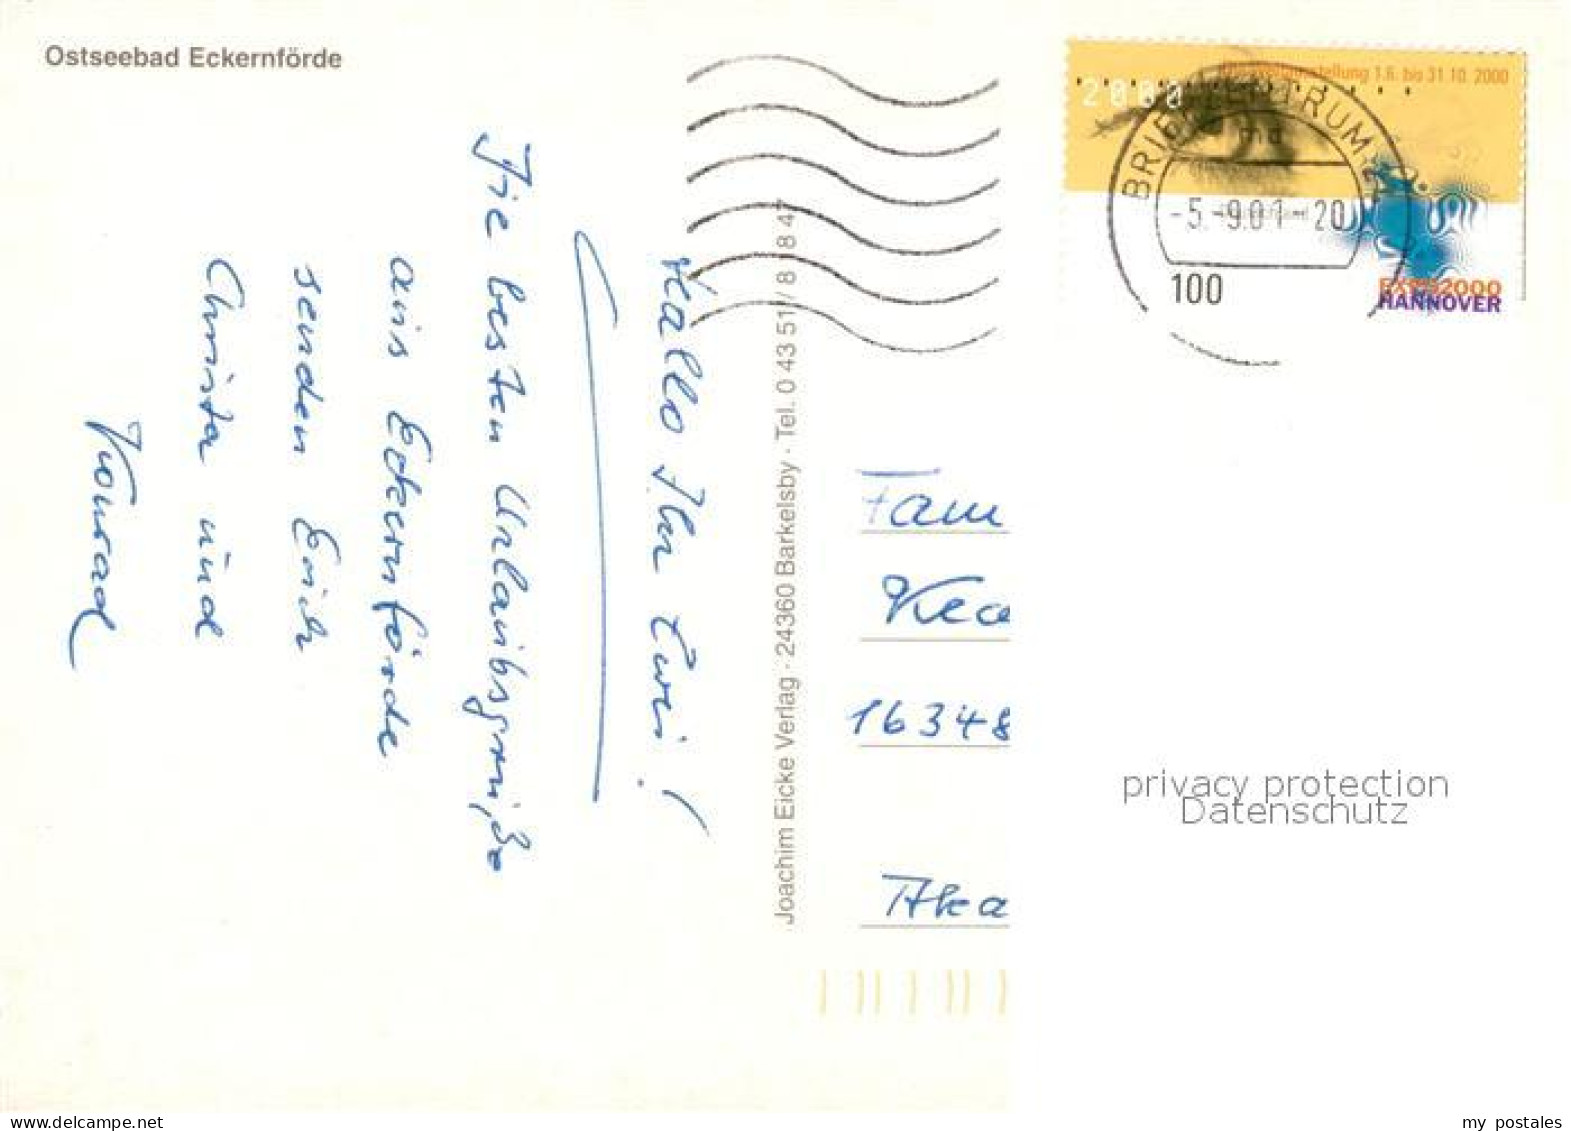 Ostseebad Eckernförde
Hallo Ihr Zwei!
Die besten Urlaubsgrüße
aus Eckernförde
senden Erich
Christa und
Konrad
Joachim Eicke Verlag · 24360 Barkelsby · Tel. 0 43 51 / 8 18 47
1.6. bis 31.10.2000
2000
EXPO2000
HANNOVER
BRIEFZENTRUM
-5.-9.01-20
100
Fam
16348
privacy protection
Datenschutz
my postales